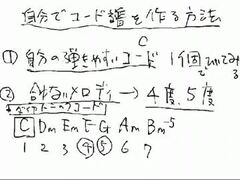 自分でコード譜を作る方法
① 自分の弾きやすいコード C 1個でひいてみる
② 合わないメロディ → 4度、5度
ダイアトニックコード
C Dm Em F G Am Bm-5
1 2 3 ④ ⑤ 6 7